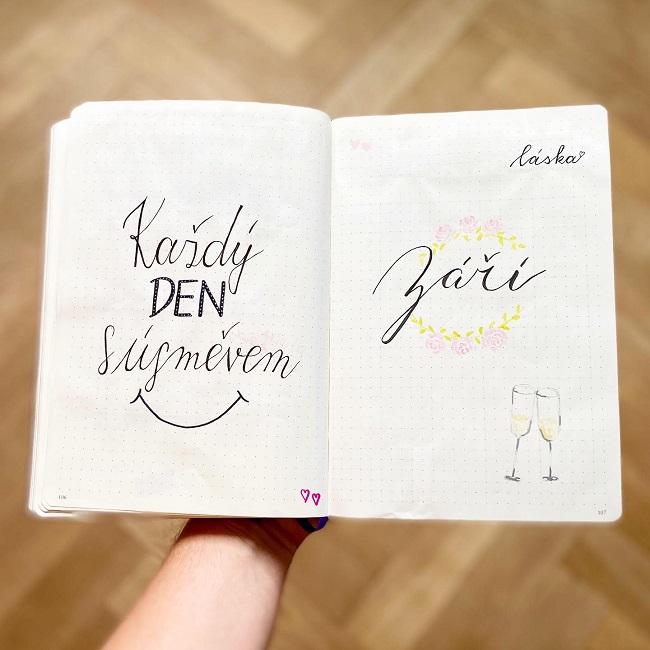 Každý
DEN
s úsměvem
106
láska
Září
107